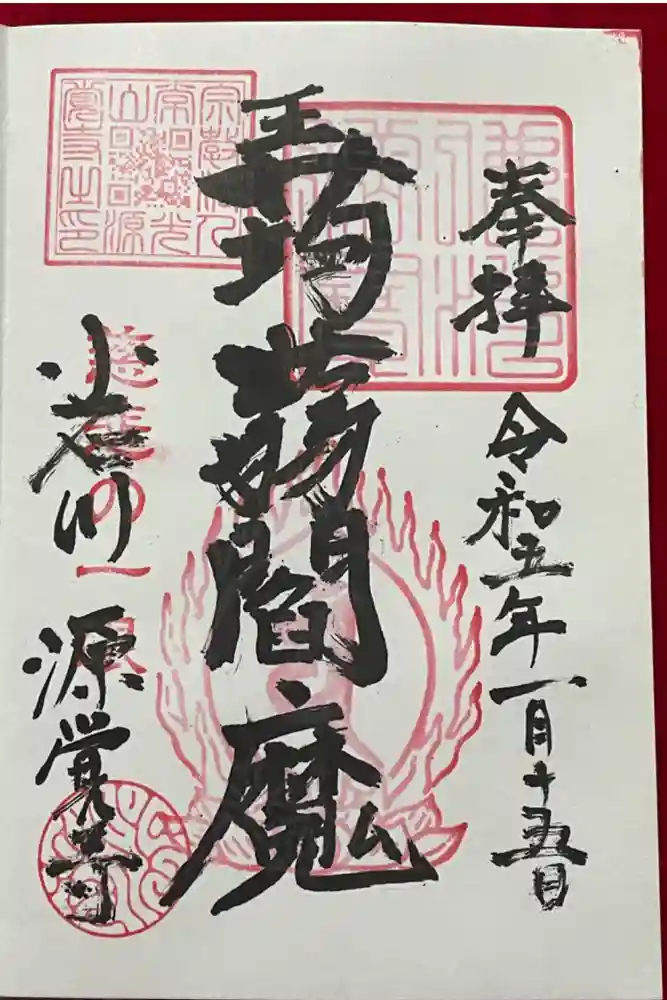 奉拝
令和五年一月十五日
蒟蒻閻魔
小石川 源覚寺
佛法僧寶